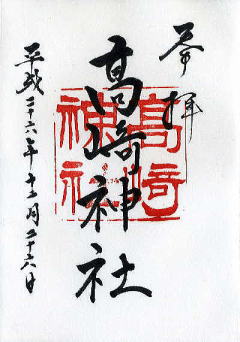 奉拝
高崎神社
高崎神社
平成二十六年十二月二十六日